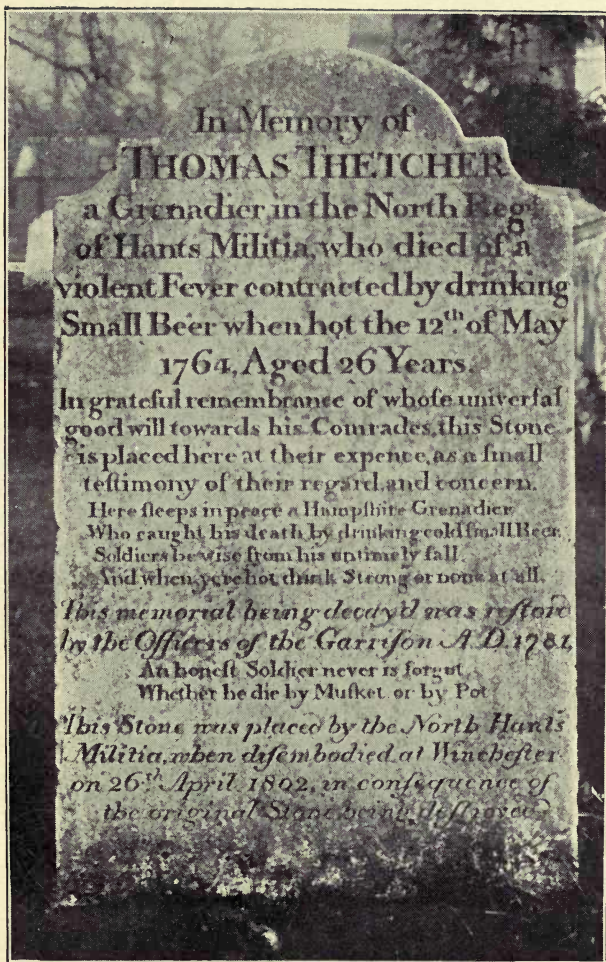 In Memory of
THOMAS THETCHER
a Grenadier in the North Reg.t
of Hants Militia, who died of a
violent Fever contracted by drinking
Small Beer when hot the 12th. of May
1764, Aged 26 Years.
In grateful remembrance of whoſe univerſal
good will towards his Comrades, this Stone
is placed here at their expence, as a ſmall
teſtimony of their regard and concern.
Here ſleeps in peace a Hampſhire Grenadier,
Who caught his death by drinking cold ſmall Beer,
Soldiers be wise from his untimely fall
And when ye're hot drink Strong or none at all.
This memorial being decay'd was reſtor'd
by the Officers of the Garriſon A.D. 1781,
An honeſt Soldier never is forgot
Whether he die by Muſket or by Pot
This Stone was placed by the North Hants
Militia, when diſembodied at Wincheſter
on 26th April 1802, in conſequence of
the original Stone being deſtroyed